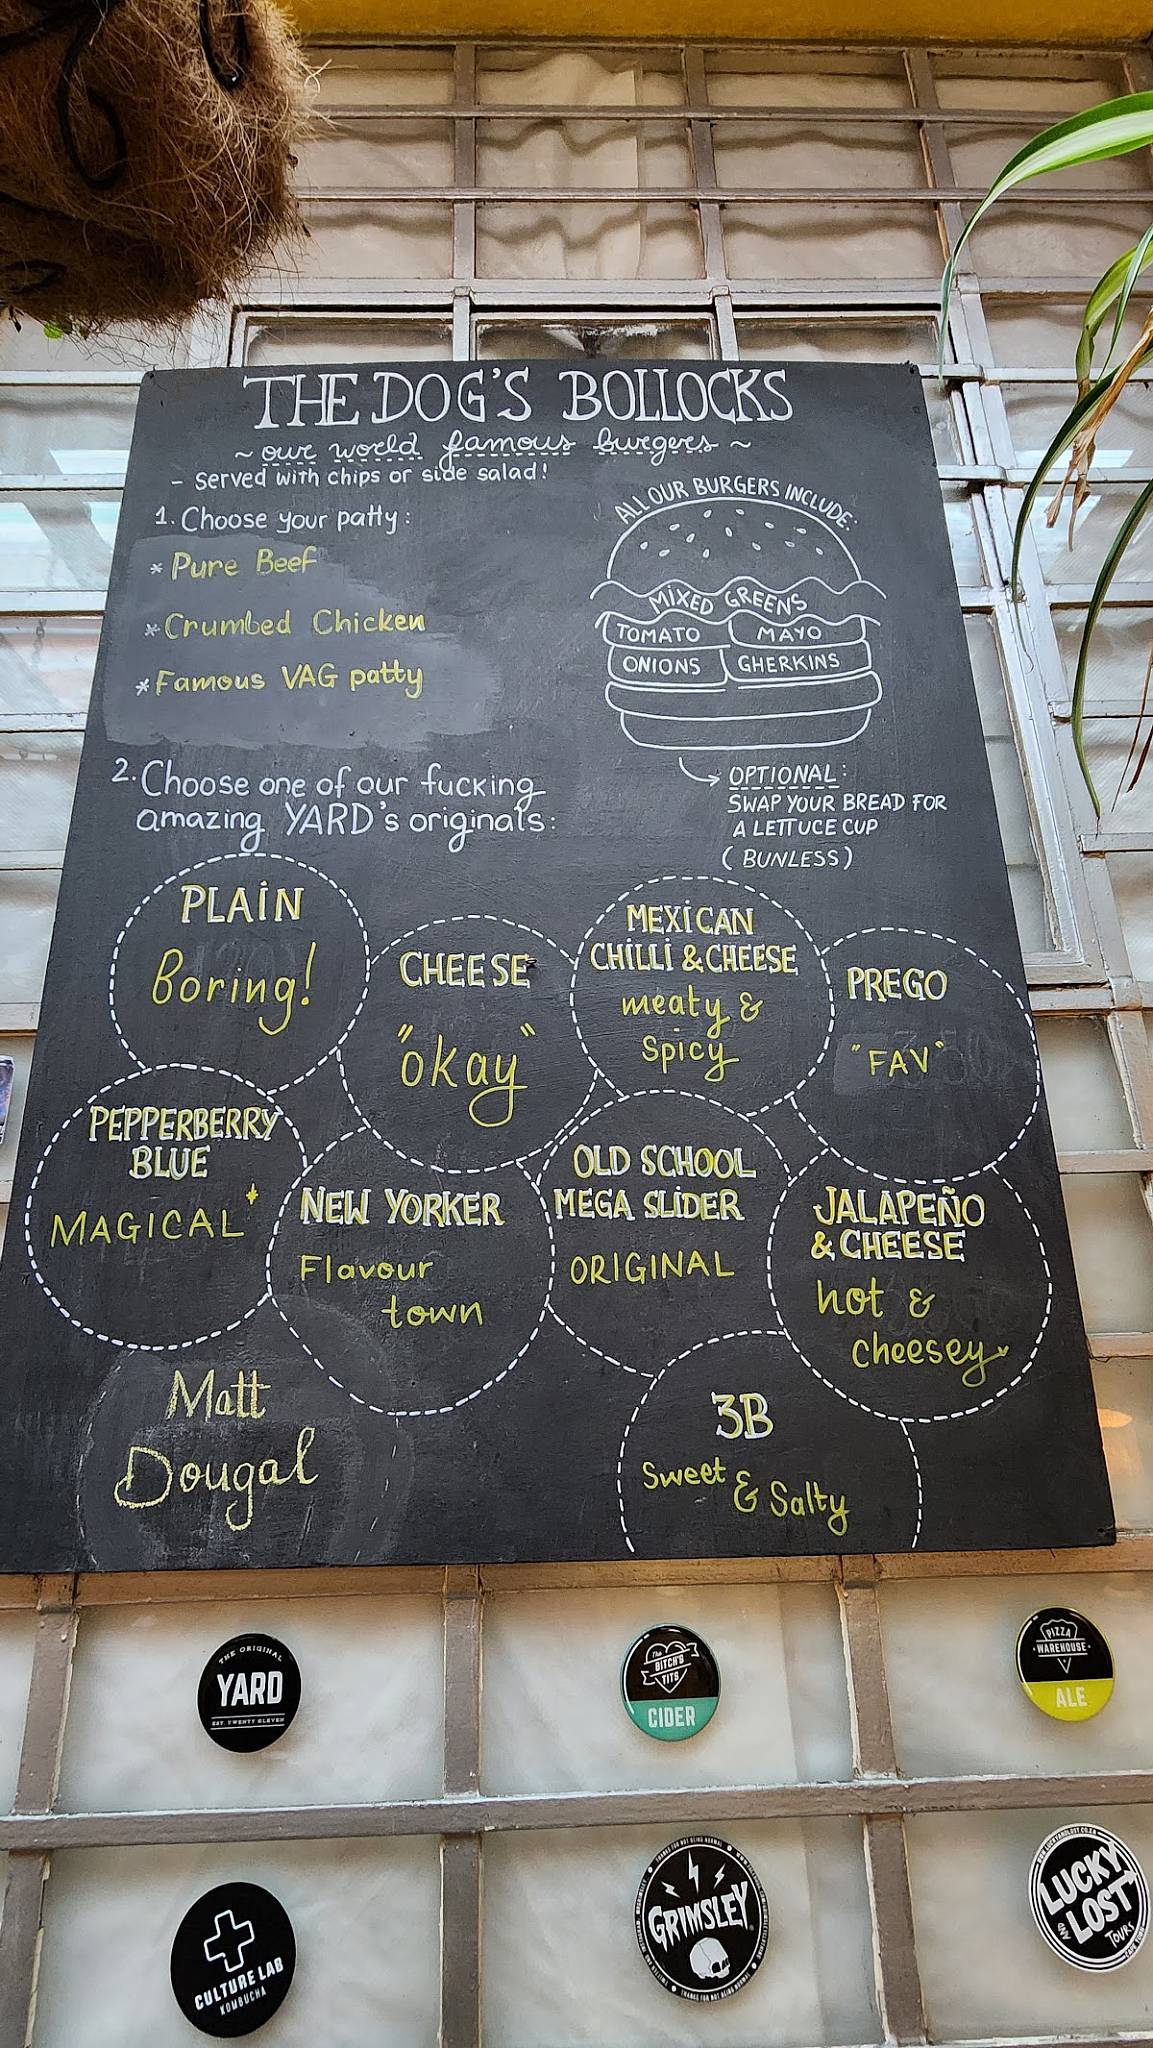 THE DOG'S BOLLOCKS
~ our world famous burgers ~
- Served with chips or side salad!
1. Choose your patty:
* Pure Beef
* Crumbed Chicken
* Famous VAG patty
ALL OUR BURGERS INCLUDE:
MIXED GREENS
TOMATO MAYO
ONIONS GHERKINS
OPTIONAL:
SWAP YOUR BREAD FOR
A LETTUCE CUP
(BUNLESS)
2. Choose one of our fucking
amazing YARD's originals:
PLAIN
Boring!
CHEESE
"okay"
MEXICAN
CHILLI & CHEESE
meaty &
Spicy
PREGO
"FAV"
PEPPERBERRY
BLUE
MAGICAL
NEW YORKER
Flavour
town
OLD SCHOOL
MEGA SLIDER
ORIGINAL
JALAPEÑO
& CHEESE
hot &
cheesey
Matt
Dougal
3B
Sweet & Salty
THE ORIGINAL
YARD
EST. TWENTY ELEVEN
The
BITCH'S
TITS
CIDER
PIZZA
WAREHOUSE
ALE
CULTURE LAB
KOMBUCHA
THANKS FOR NOT BEING NORMAL
GRIMSLEY
THANKS FOR NOT BEING NORMAL
LUCKY
LOST
TOURS